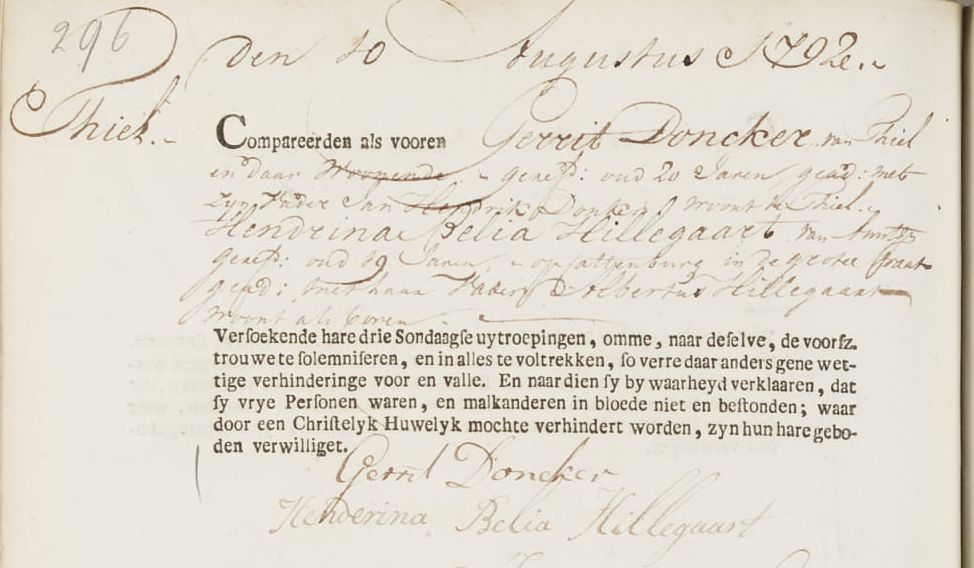 296
Den 10 Augustus 1792.
Thiel.
Compareerden als vooren Gerrit Doncker van Thiel
en daar Woonende geref: oud 20 Jaren, gead: met
zyn Vader Jan Hendrik Donker woont te Thiel.
Hendrina Belia Hillegaart van Amst
geref: oud 19 Jaren, op Cattenburg in de groote straat
gead: met haar Vader Albertus Hillegaart
woont als boven.
Versoekende hare drie Sondaagse uytroepingen, omme, naar deselve, de voorsz.
trouwe te solemniseren, en in alles te voltrekken, so verre daar anders gene wet-
tige verhinderinge voor en valle. En naar dien sy by waarheyd verklaaren, dat
sy vrye Personen waren, en malkanderen in bloede niet en bestonden; waar
door een Christelyk Huwelyk mochte verhindert worden, zyn hun hare gebo-
den verwilliget.
Gerrit Doncker
Henderina Belia Hillegaart